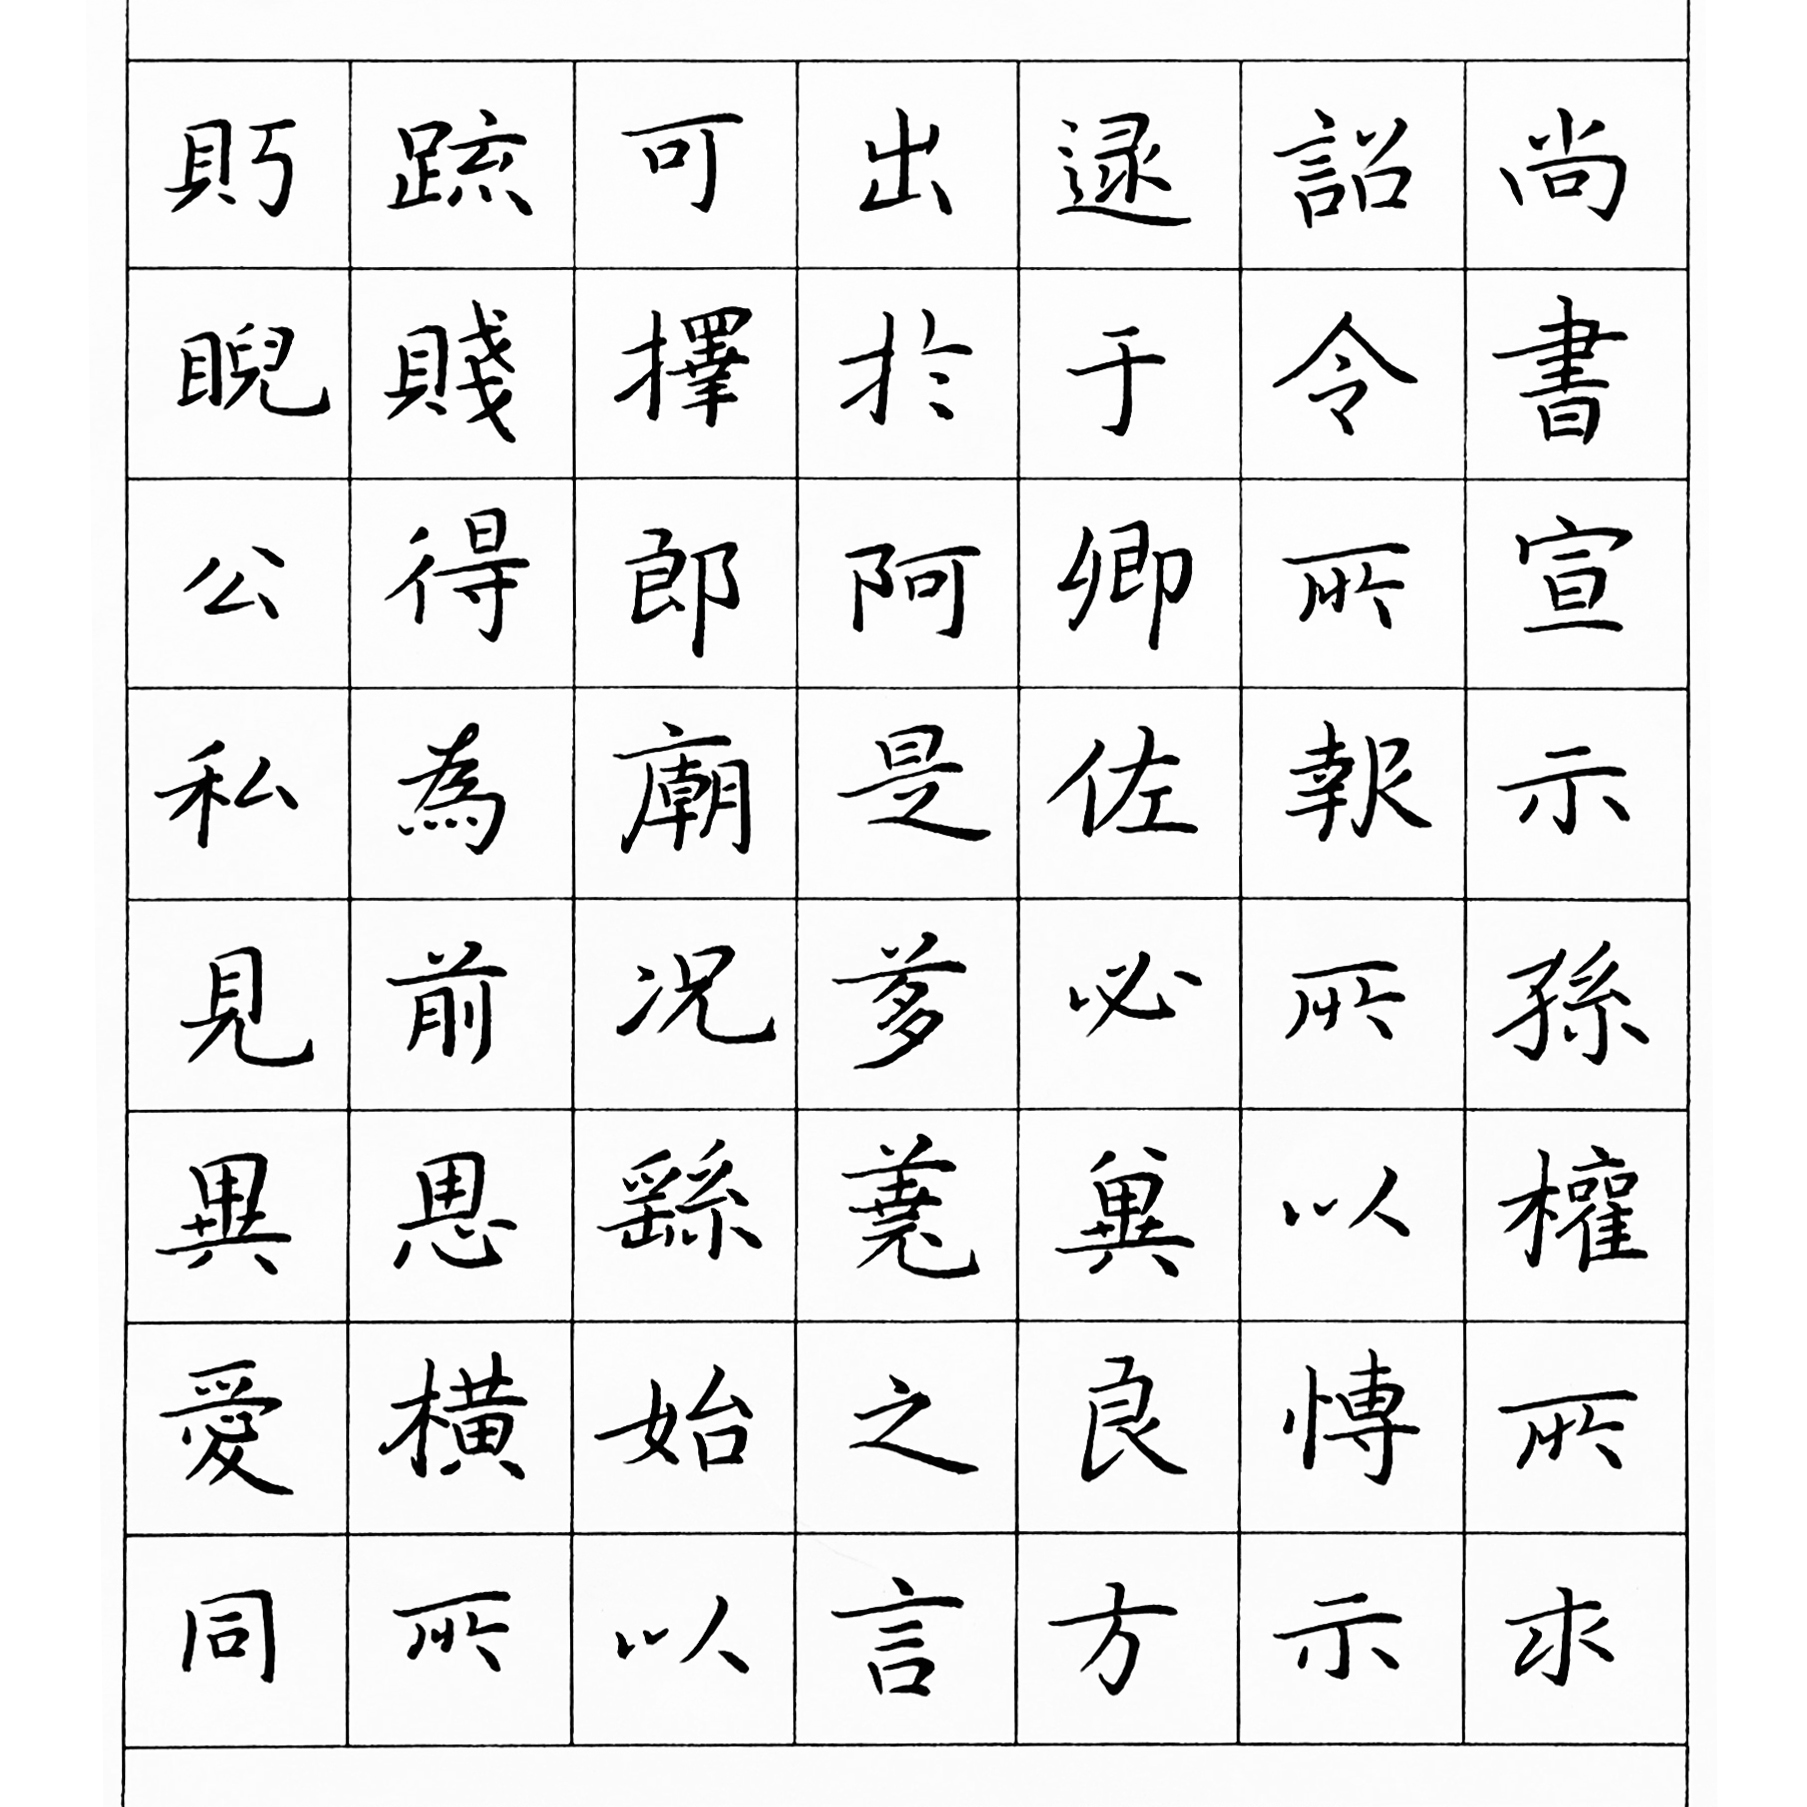 尚書宣示孫權所求
詔令所報所以博示
逮于卿佐必冀良方
出於阿是芻蕘之言
可擇郎廟況繇始以
疏賤得為前恩橫所
眄睨公私見異愛同